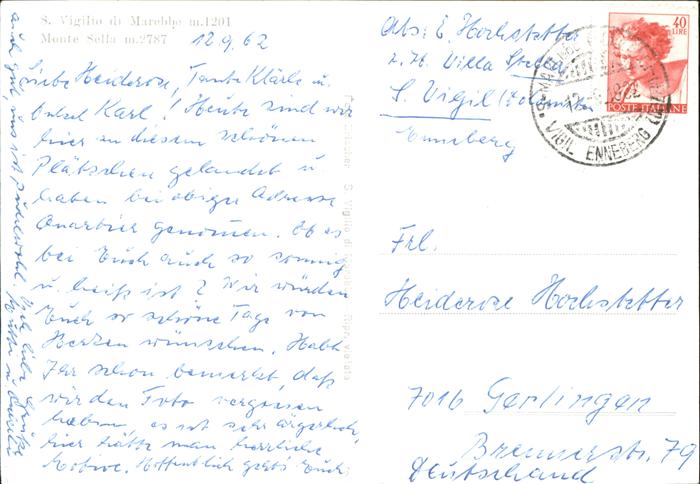 S. Vigilio di Marebbe m.1201
Monte Sella m.2787
12.9.62
Liebe Heiderose, Tante Klärle u.
Onkel Karl! Heute sind wir
hier an diesem schönen
Plätzchen gelandet u.
haben bei obiger Adresse
Quartier genommen. Ob es
bei Euch auch so sonnig
u. heiß ist? Wir würden
Euch so schöne Tage von
Herzen wünschen. Habt
Ihr schon bemerkt, daß
wir den Foto vergessen
haben, es ist sehr ärgerlich,
hier hätte man herrliche
Motive. Hoffentlich geht's Euch
auch gut, uns ist pudelwohl. Viele liebe Grüße
Mutter u.
Abs: E. Hochstetter
z. Zt. Villa
S. Vigil
Enneberg
40
LIRE
POSTE ITALIANE
VIGIL ENNEBERG
Frl.
Heiderose Hochstetter
7016 Gerlingen
Brennerstr. 79
Deutschland